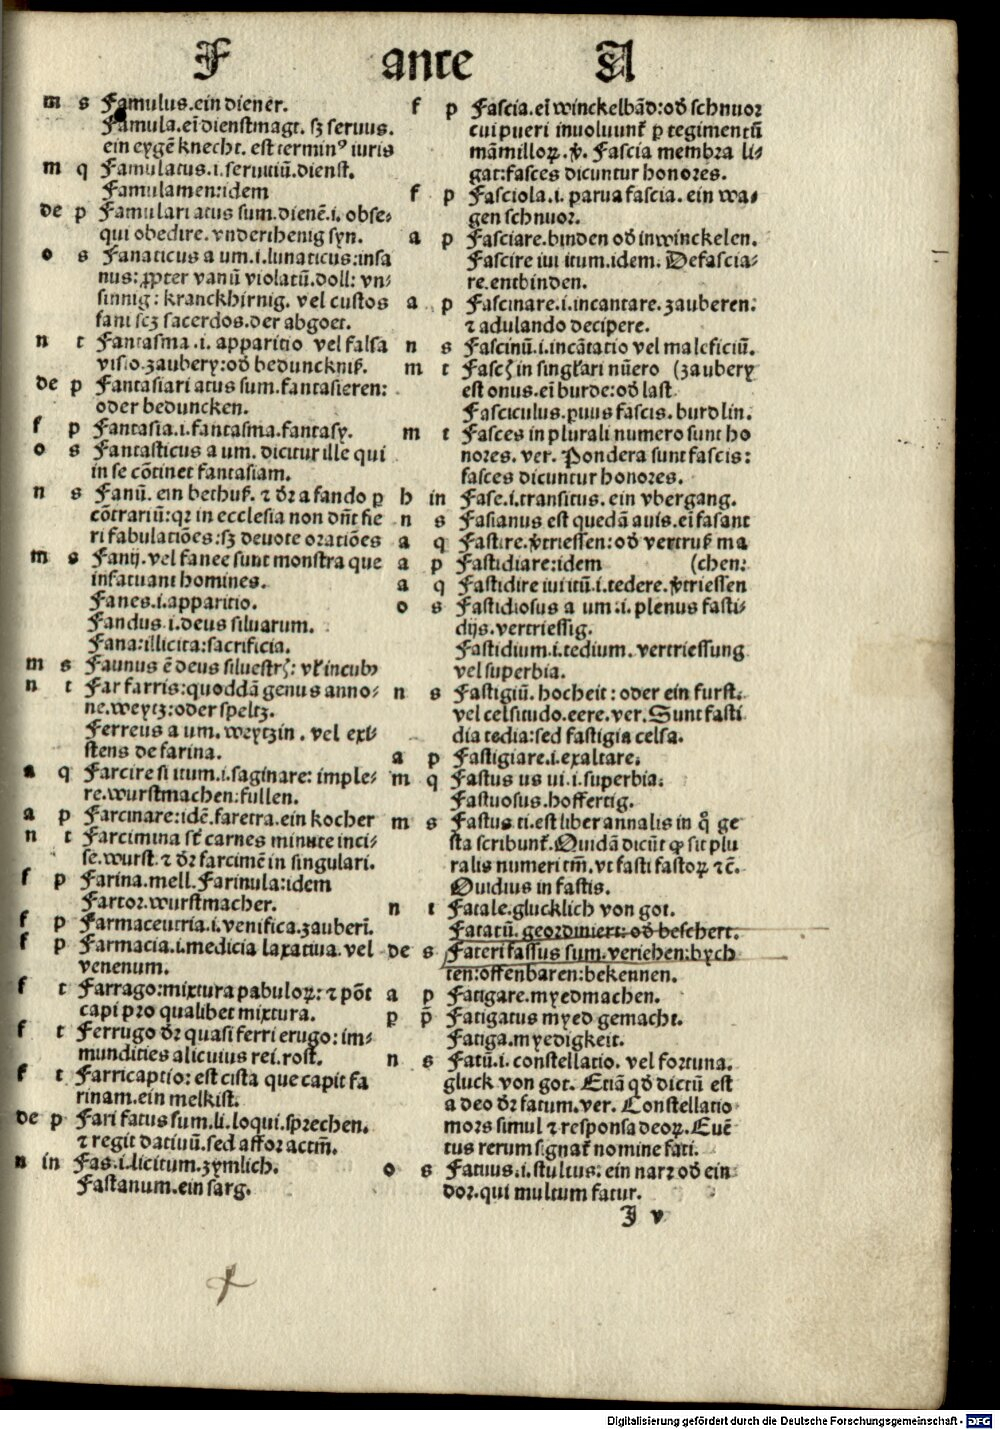 F ante A
m s Famulus.ein diener.
Famula.eī dienstmagt. sꝫ seruus.
ein eygē knecht. est terminꝰ iuris
m q Famulatus.i.seruitiū.dienst.
Famulamen:idem
de p Famulari atus sum.dienē.i. obse⸗
qui obedire.vnderthenig syn.
o s Fanaticus a um.i.lunaticus:insa
nus:ꝓpter vanū violatū.doll: vn⸗
sinnig: kranckhirnig. vel custos
fani scꝫ sacerdos.der abgoet.
n t Fantasma.i. apparitio vel falsa
visio.zaubery:od̕ bedunckniß.
de p Fantasiari atus sum.fantasieren:
oder beduncken.
f p Fantasia.i.fantasma.fantasy.
o s Fantasticus a um. dicitur ille qui
in se cōtinet fantasiam.
n s Fanū. ein bethuß. ⁊ dr̄ a fando ꝑ
cōtrariū:qꝛ in ecclesia non dn̄t fie
ri fabulatiōes:sꝫ deuote oratiōes
m s Fanij.vel fanee sunt monstra que
infatuant homines.
Fanes.i.apparitio.
Fandus.i.deus siluarum.
Fana:illicita:sacrificia.
m s Faunus ē deus siluestr̄: vl̕ incubꝰ
n t Far farris:quoddā genus anno⸗
ne.weytz:oder speltz.
Ferreus a um. weytzin. vel exi⸗
stens de farina.
a q Farcire si itum.i.saginare: imple⸗
re.wurstmachen:fullen.
a p Farcinare:idē.faretra.ein kocher
n t Farcimina sūt carnes minute inci⸗
se.wurst.⁊ dr̄ farcimē in singulari.
f p Farina.mell.Farinula:idem
Fartor.wurstmacher.
f p Farmaceutria.i.venifica.zauberī.
f p Farmacia.i.medicīa laxatiua. vel
venenum.
f t Farrago:mixtura pabuloꝝ: ⁊ pōt
capi pro qualibet mixtura.
f t Ferrugo dr̄ quasi ferri erugo: im⸗
mundities alicuius rei.rost.
f t Farricaptio: est cista que capit fa
rinam.ein melkist.
de p Fari fatus sum.li.loqui.sprechen.
⁊ regit datiuū.sed affor actm̄.
n in Fas.i.licitum.zymlich.
Fastanum.ein sarg.
f p Fascia.eī winckelbād:od̕ schnuor
cui pueri inuoluunt̕ ꝑ tegimentū
māmilloꝝ.v̕. Fascia membra li⸗
gat:fasces dicuntur honores.
f p Fasciola.i. parua fascia. ein wa⸗
gen schnuor.
a p Fasciare.binden od̕ inwinckelen.
Fascire iui itum.idem. Defascia⸗
re.entbinden.
a p Fascinare.i.incantare. zauberen:
⁊ adulando decipere.
n s Fascinū.i.incātatio vel maleficiū.
m t Fasc̄ in singl̕ari nūero (zaubery
est onus.eī burde:od̕ last
Fasciculus.ꝑuus fascis. burdlin.
m t Fasces in plurali numero sunt ho
nores. ver. Pondera sunt fascis:
fasces dicuntur honores.
h in Fase.i.transitus. ein vbergang.
n s Fasianus est quedā auis.eī fasant
a q Fastire.v̕triessen:od̕ vertruß ma
a p Fastidiare:idem (chen:
a q Fastidire iui itū.i.tedere.v̕triessen
o s Fastidiosus a um:i. plenus fasti⸗
dijs.vertriessig.
Fastidium.i.tedium. vertriessung
vel superbia.
n s Fastigiū. hocheit: oder ein furst.
vel celsitudo.eere.ver.Sunt fasti
dia tedia:sed fastigia celsa.
a p Fastigiare.i.exaltare.
m q Fastus us ui.i.superbia.
Fastuosus.hoffertig.
m s Fastus ti.est liber annalis in q̄ ge
sta scribunt̕.Quidā dicūt ꝙ sit plu
ralis numeri tm̄.vt fasti fastoꝝ ⁊c̄.
Ouidius in fastis.
n t Fatale.glucklich von got.
Fatatū. geordiniert: od̕ beschert.
de s Fateri fassus sum.veriehen:bych
ten:offenbaren:bekennen.
a p Fatigare.myedmachen.
p p̄ Fatigatus myed gemacht.
Fatiga.myedigkeit.
n s Fatū.i. constellatio. vel fortuna.
gluck von got. Etiā qd̕ dictū est
a deo dr̄ fatum.ver. Constellatio
mors simul ⁊ responsa deoꝝ. Euē
tus rerum signat̕ nomine fati.
o s Fatuus.i.stultus: ein narr od̕ ein
dor.qui multum fatur.
I v
Digitalisierung gefördert durch die Deutsche Forschungsgemeinschaft - DFG